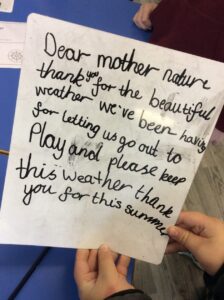 Dear mother nature
thank you for the beautiful
weather we've been having
for letting us go out to
Play and please keep
this weather thank
you for this summer